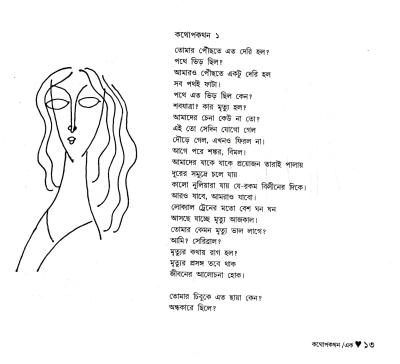 কথোপকথন ১
তোমার পৌঁছতে এত দেরি হল?
পথে ভিড় ছিল?
আমারও পৌঁছতে একটু দেরি হল
সব পথই ফাটা।
পথে এত ভিড় ছিল কেন?
শবযাত্রা? কার মৃত্যু হল?
আমাদের চেনা কেউ না তো?
এই তো সেদিন যোগো গেল
দৌড়ে গেল, এখনও ফিরল না।
আগে পরে শঙ্কর, বিমল।
আমাদের যাকে যাকে প্রয়োজন তারাই পালায়
দূরের সমুদ্রে চলে যায়
কালো নুলিয়ারা যায় যে-রকম বিলীনের দিকে।
আরও যাবে, আমরাও যাবো।
লোকাল ট্রেনের মতো বেশ ঘন ঘন
আসছে যাচ্ছে মৃত্যু আজকাল।
তোমার কেমন মৃত্যু ভাল লাগে?
আমি? সেরিব্রাল?
মৃত্যুর কথায় রাগ হল?
মৃত্যুর প্রসঙ্গ তবে থাক
জীবনের আলোচনা হোক।
তোমার চিবুকে এত ছায়া কেন?
অন্ধকারে ছিলে?
কথোপকথন /এক ♥ ১৩